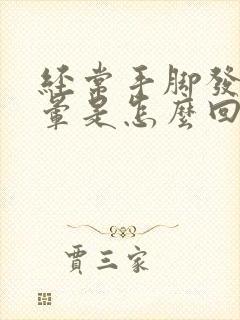 經常手腳發
暈是怎麼回
賈三家